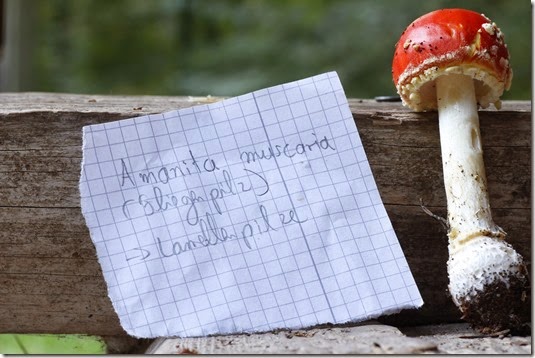 Amanita muscaria
(Fliegenpilz)
→ Lamellenpilze